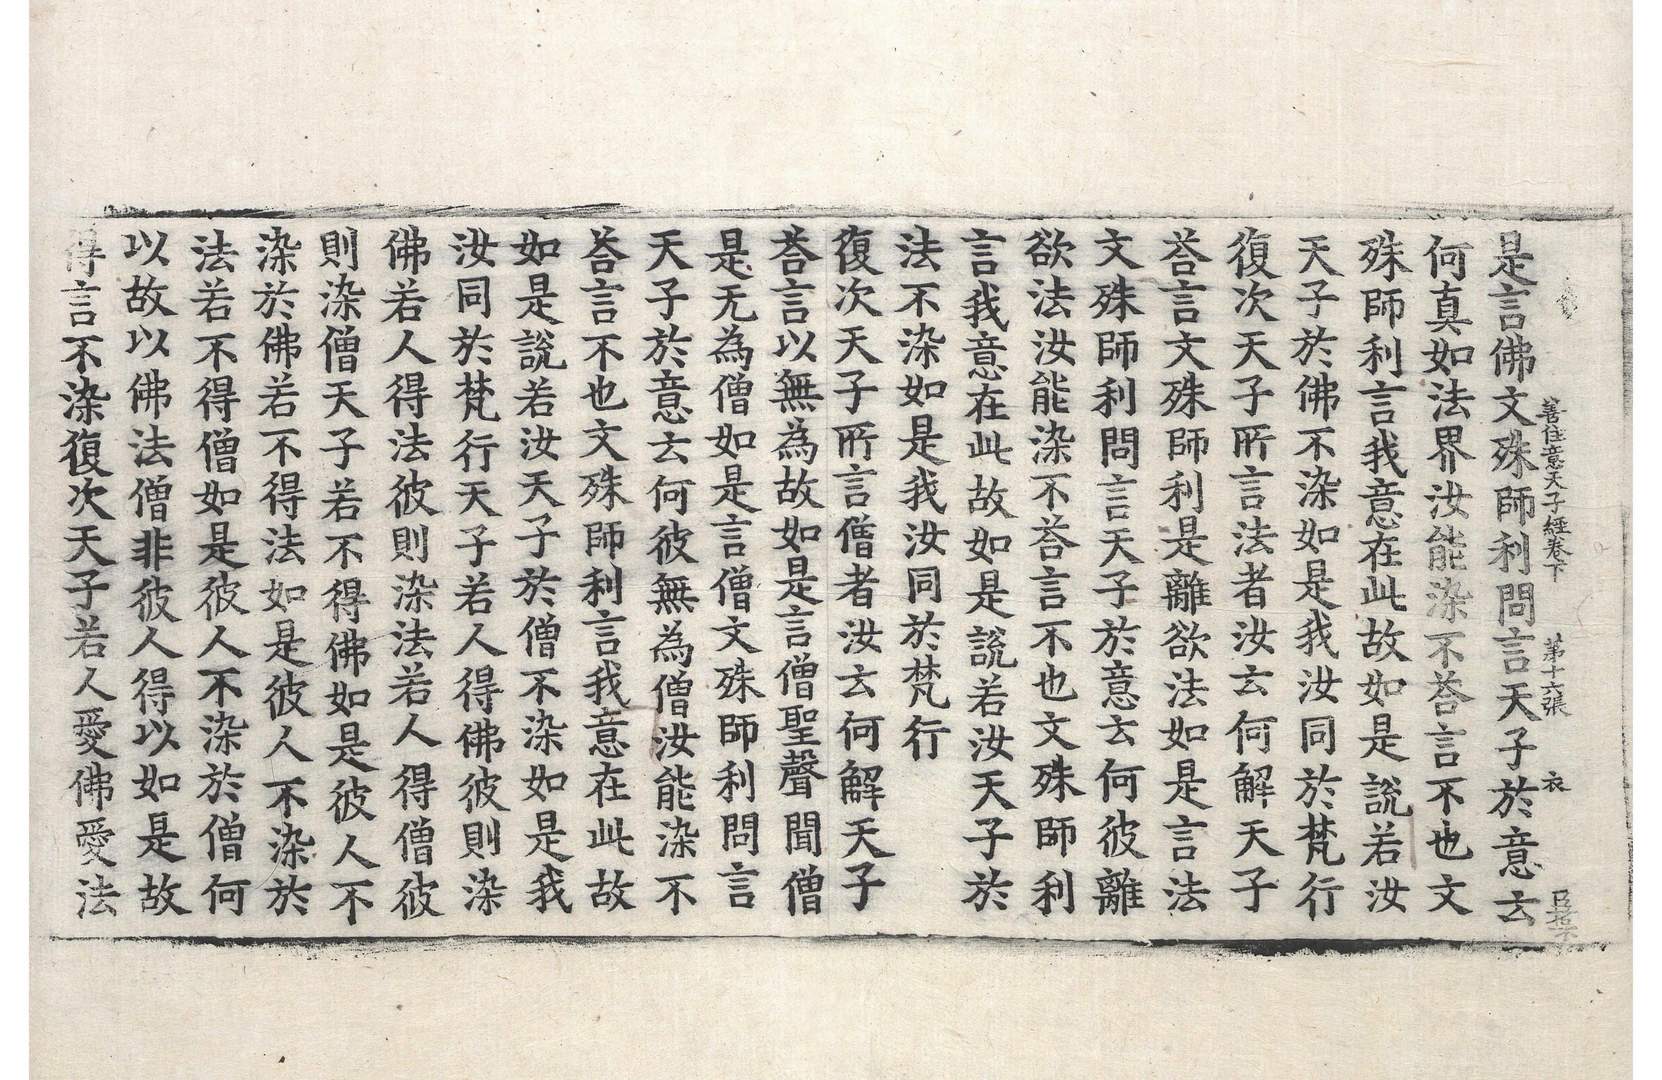 善住意天子經卷下 第十六張 衣
是言佛文殊師利問言天子於意云
何真如法界汝能染不荅言不也文
殊師利言我意在此故如是說若汝
天子於佛不染如是我汝同於梵行
復次天子所言法者汝云何解天子
荅言文殊師利是離欲法如是言法
文殊師利問言天子於意云何彼離
欲法汝能染不荅言不也文殊師利
言我意在此故如是說若汝天子於
法不染如是我汝同於梵行
復次天子所言僧者汝云何解天子
荅言以無為故如是言僧聖聲聞僧
是无為僧如是言僧文殊師利問言
天子於意云何彼無為僧汝能染不
荅言不也文殊師利言我意在此故
如是說若汝天子於僧不染如是我
汝同於梵行天子若人得佛彼則染
佛若人得法彼則染法若人得僧彼
則染僧天子若不得佛如是彼人不
染於佛若不得法如是彼人不染於
法若不得僧如是彼人不染於僧何
以故以佛法僧非彼人得以如是故
得言不染復次天子若人愛佛愛法